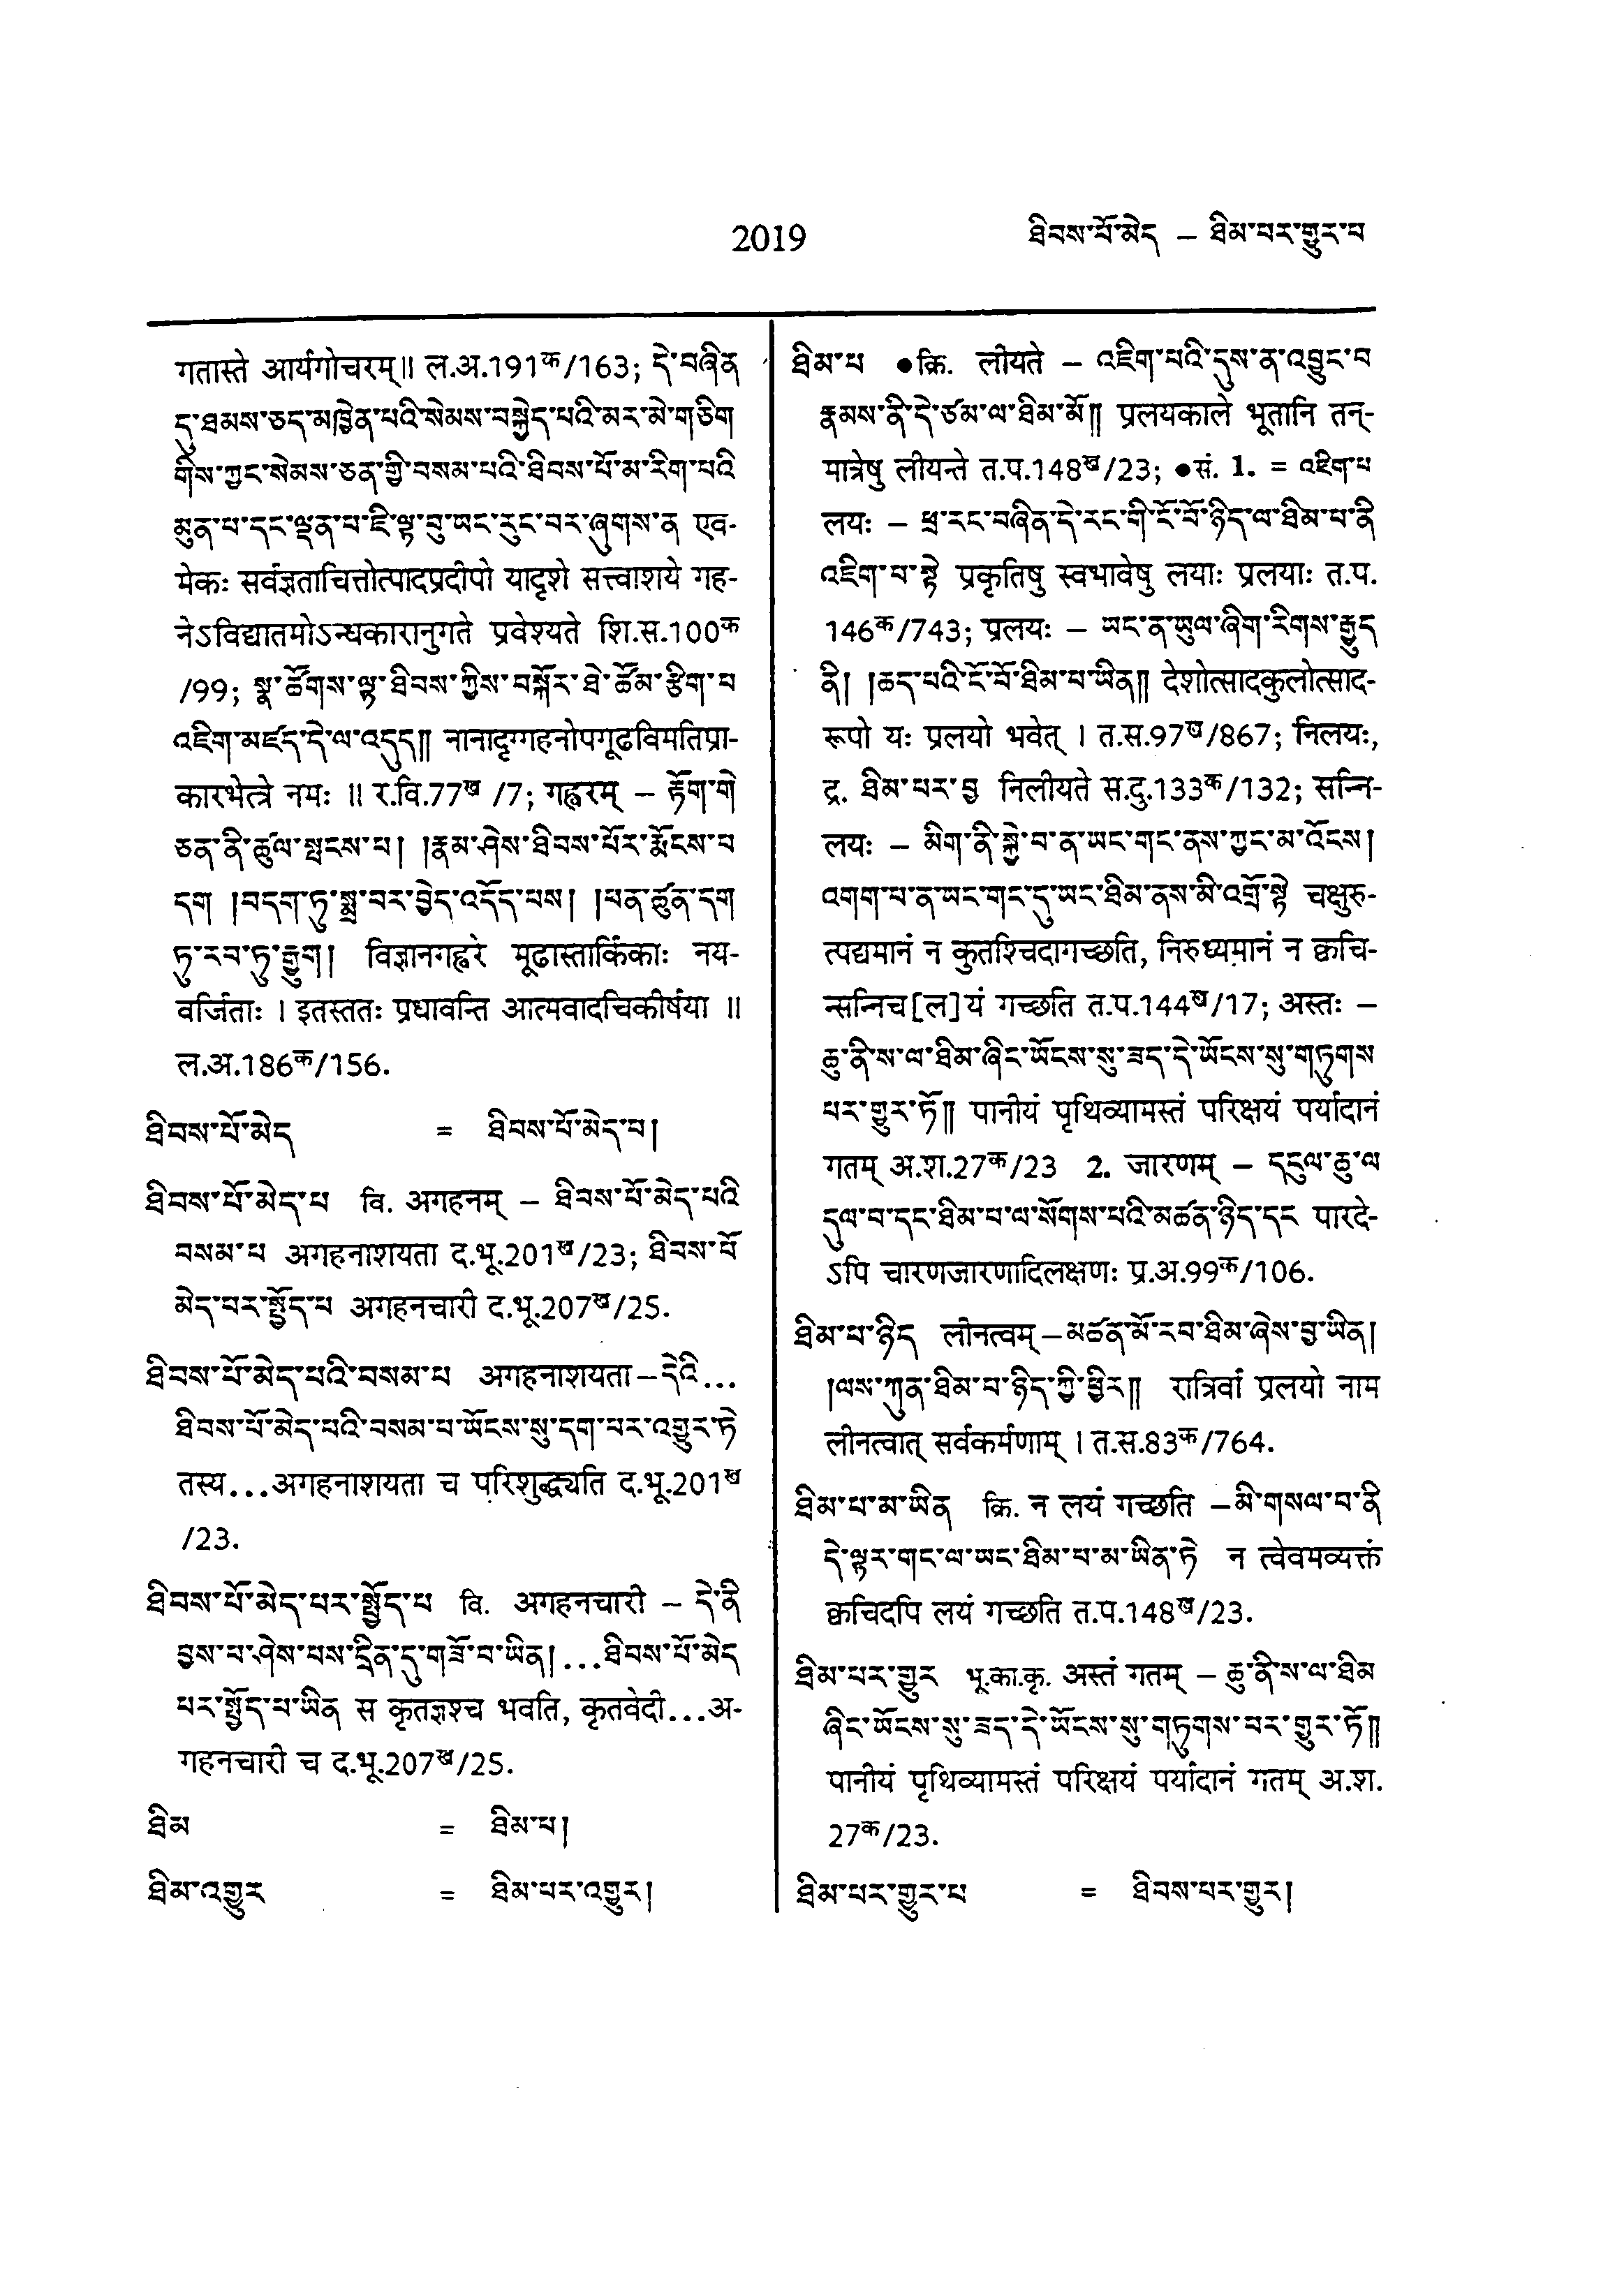 2019
ཐིབས་པོ་མེད – ཐིམ་པར་གྱུར་པ
गतास्ते आर्यगोचरम्॥ ल.अ.191क/163; དེ་བཞིན
དུ་ཐམས་ཅད་མཁྱེན་པའི་སེམས་བསྐྱེད་པའི་མར་མེ་གཅིག
གིས་ཀྱང་སེམས་ཅན་གྱི་བསམ་པའི་ཐིབས་པོ་མ་རིག་པའི
མུན་པ་དང་ལྡན་པ་ཇི་ལྟ་བུ་ཡང་རུང་བར་ཞུགས་ན एव-
मेकः सर्वज्ञताचित्तोत्पादप्रदीपो यादृशे सत्त्वाशये गह-
नेऽविद्यातमोऽन्धकारानुगते प्रवेश्यते शि.स.100क
/99; སྣ་ཚོགས་ལྟ་ཐིབས་ཀྱིས་བསྐོར་ཐེ་ཚོམ་རྩིག་པ
འཇིག་མཛད་དེ་ལ་འདུད༎ नानादृग्गहनोपगूढविमतिप्रा-
कारभेत्त्रे नमः ॥ र.वि.77ख /7; गह्वरम् – རྟོག་གེ
ཅན་ནི་ཚུལ་སྤངས་པ། །རྣམ་ཤེས་ཐིབས་པོར་རྨོངས་པ
དག །བདག་ཏུ་སྨྲ་བར་བྱེད་འདོད་པས། །ཕན་ཚུན་དག
ཏུ་རབ་ཏུ་རྒྱུག། विज्ञानगह्वरे मूढास्तार्किकाः नय-
वर्जिताः । इतस्ततः प्रधावन्ति आत्मवादचिकीर्षया ॥
ल.अ.186क/156.
ཐིབས་པོ་མེད = ཐིབས་པོ་མེད་པ།
ཐིབས་པོ་མེད་པ वि. अगहनम् – ཐིབས་པོ་མེད་པའི
བསམ་པ अगहनाशयता द.भू.201ख/23; ཐིབས་པོ
མེད་པར་སྤྱོད་པ अगहनचारी द.भू.207ख/25.
ཐིབས་པོ་མེད་པའི་བསམ་པ अगहनाशयता – དེའི...
ཐིབས་པོ་མེད་པའི་བསམ་པ་ཡོངས་སུ་དག་པར་འགྱུར་ཏེ
तस्य...अगहनाशयता च परिशुद्ध्यति द.भू.201ख
/23.
ཐིབས་པོ་མེད་པར་སྤྱོད་པ वि. अगहनचारी – དེ་ནི
བྱས་པ་ཤེས་པས་དྲིན་དུ་གཟོ་བ་ཡིན།...ཐིབས་པོ་མེད
པར་སྤྱོད་པ་ཡིན स कृतज्ञश्च भवति, कृतवेदी...अ-
गहनचारी च द.भू.207ख/25.
ཐིམ = ཐིམ་པ།
ཐིམ་འགྱུར = ཐིམ་པར་འགྱུར།
ཐིམ་པ ●क्रि. लीयते – འཇིག་པའི་དུས་ན་འབྱུང་བ
རྣམས་ནི་དེ་ཙམ་ལ་ཐིམ་མོ༎ प्रलयकाले भूतानि तन्-
मात्रेषु लीयन्ते त.प.148ख/23; ●सं. 1. = འཇིག་པ
लयः – ཕྲ་རང་བཞིན་དེ་རང་གི་ངོ་བོ་ཉིད་ལ་ཐིམ་པ་ནི
འཇིག་པ་སྟེ प्रकृतिषु स्वभावेषु लयाः प्रलयाः त.प.
146क/743; प्रलयः – ཡང་ན་ཡུལ་ཞིག་རིགས་རྒྱུད
ནི། །ཆད་པའི་ངོ་བོ་ཐིམ་པ་ཡིན༎ देशोत्सादकुलोत्साद-
रूपो यः प्रलयो भवेत् । त.स.97ख/867; निलयः,
द्र. ཐིམ་པར་བྱ निलीयते स.दु.133क/132; सन्नि-
लयः – མིག་ནི་སྐྱེ་བ་ན་ཡང་གང་ནས་ཀྱང་མ་འོངས།
འགག་པ་ན་ཡང་གང་དུ་ཡང་ཐིམ་ནས་མི་འགྲོ་སྟེ चक्षुरु-
त्पद्यमानं न कुतश्चिदागच्छति, निरुध्यमानं न क्वचि-
न्सन्निच[ल]यं गच्छति त.प.144ख/17; अस्तः –
ཆུ་ནི་ས་ལ་ཐིམ་ཞིང་ཡོངས་སུ་ཟད་དེ་ཡོངས་སུ་གཏུགས
པར་གྱུར་ཏོ༎ पानीयं पृथिव्यामस्तं परिक्षयं पर्यादानं
गतम् अ.श.27क/23 2. जारणम् – དངུལ་ཆུ་ལ
དུལ་བ་དང་ཐིམ་པ་ལ་སོགས་པའི་མཚན་ཉིད་དང पारदे-
ऽपि चारणजारणादिलक्षणः प्र.अ.99क/106.
ཐིམ་པ་ཉིད लीनत्वम् – མཚན་མོ་རབ་ཐིམ་ཞེས་བྱ་ཡིན།
།ལས་ཀུན་ཐིམ་པ་ཉིད་ཀྱི་ཕྱིར༎ रात्रिर्वा प्रलयो नाम
लीनत्वात् सर्वकर्मणाम् । त.स.83क/764.
ཐིམ་པ་མ་ཡིན क्रि. न लयं गच्छति – མི་གསལ་བ་ནི
དེ་ལྟར་གང་ལ་ཡང་ཐིམ་པ་མ་ཡིན་ཏེ न त्वेवमव्यक्तं
क्वचिदपि लयं गच्छति त.प.148ख/23.
ཐིམ་པར་གྱུར भू.का.कृ. अस्तं गतम् – ཆུ་ནི་ས་ལ་ཐིམ
ཞིང་ཡོངས་སུ་ཟད་དེ་ཡོངས་སུ་གཏུགས་པར་གྱུར་ཏོ༎
पानीयं पृथिव्यामस्तं परिक्षयं पर्यादानं गतम् अ.श.
27क/23.
ཐིམ་པར་གྱུར་པ = ཐིབས་པར་གྱུར།